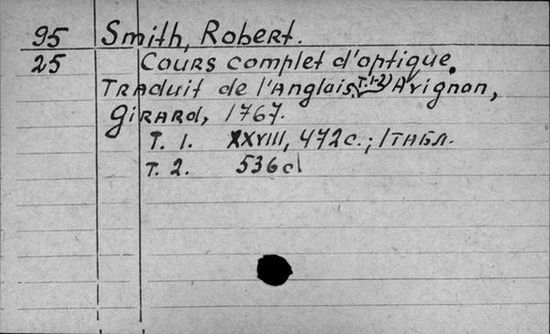 95 Smith, Robert.
25 Cours complet d'optique.
Traduit de l'Anglais. T. 1-2) Avignon,
Girard, 1767.
T. 1. XXVIII, 472 c.; 1 табл.
T. 2. 536 c